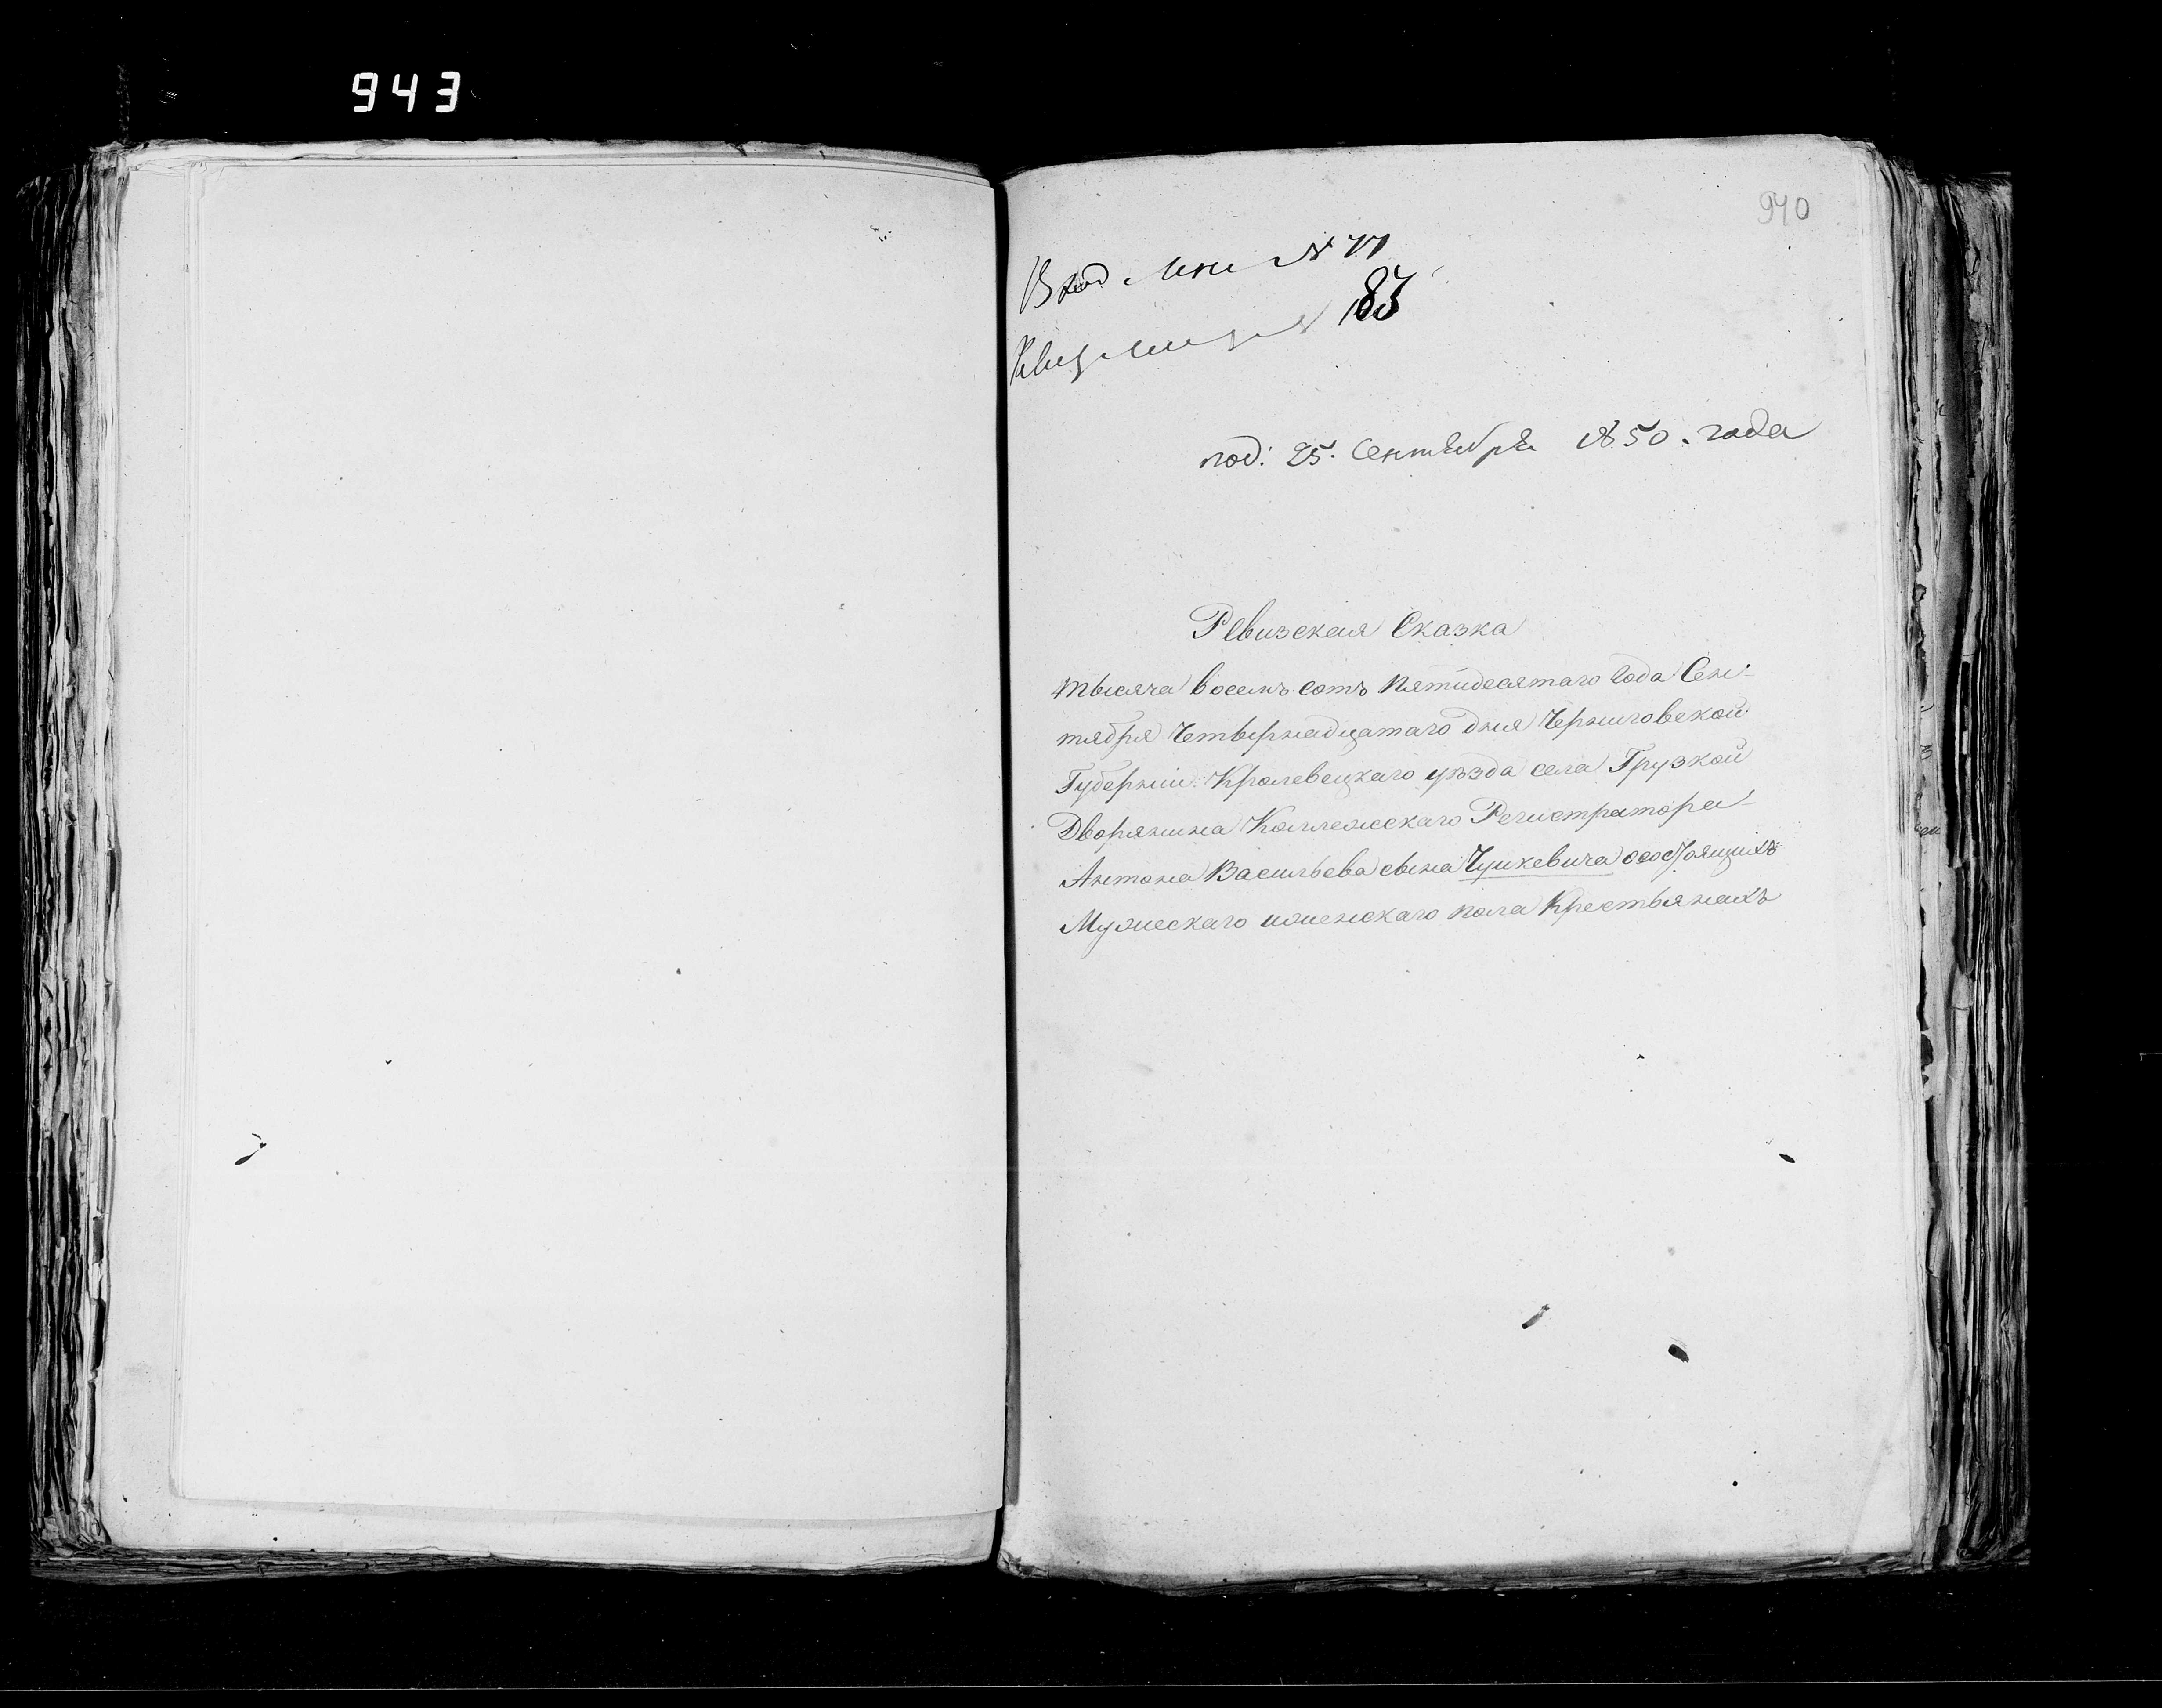 943
940
Вход № 77
№ 83
под: 25. Сентября 1850. года
Ревизская Сказка
тысяча восемь сотъ пятидесятаго года Сен-
тября Четвернадцатаго дня Черниговской
Губернии Кролевецкаго уѣзда села Грузкой
Дворянина Коллежскаго Регистратора
Антона Васильева сына Чушкевича о состоящихъ
Мужескаго и женскаго пола Крестьянахъ